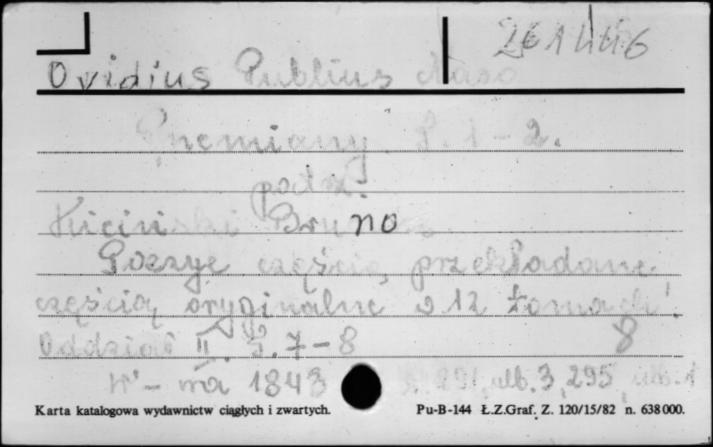 261446
Ovidius Publius Naso
Przemiany. T. 1-2.
podz.
Kiciński Bruno
Poezye częścią przekładane
częścią oryginalne w 12 tomach.
Oddział II. T. 7-8 8
W-wa 1843 s. 291, nlb. 3, 295, nlb. 1
Karta katalogowa wydawnictw ciągłych i zwartych. Pu-B-144 Ł.Z.Graf. Z. 120/15/82 n. 638000.